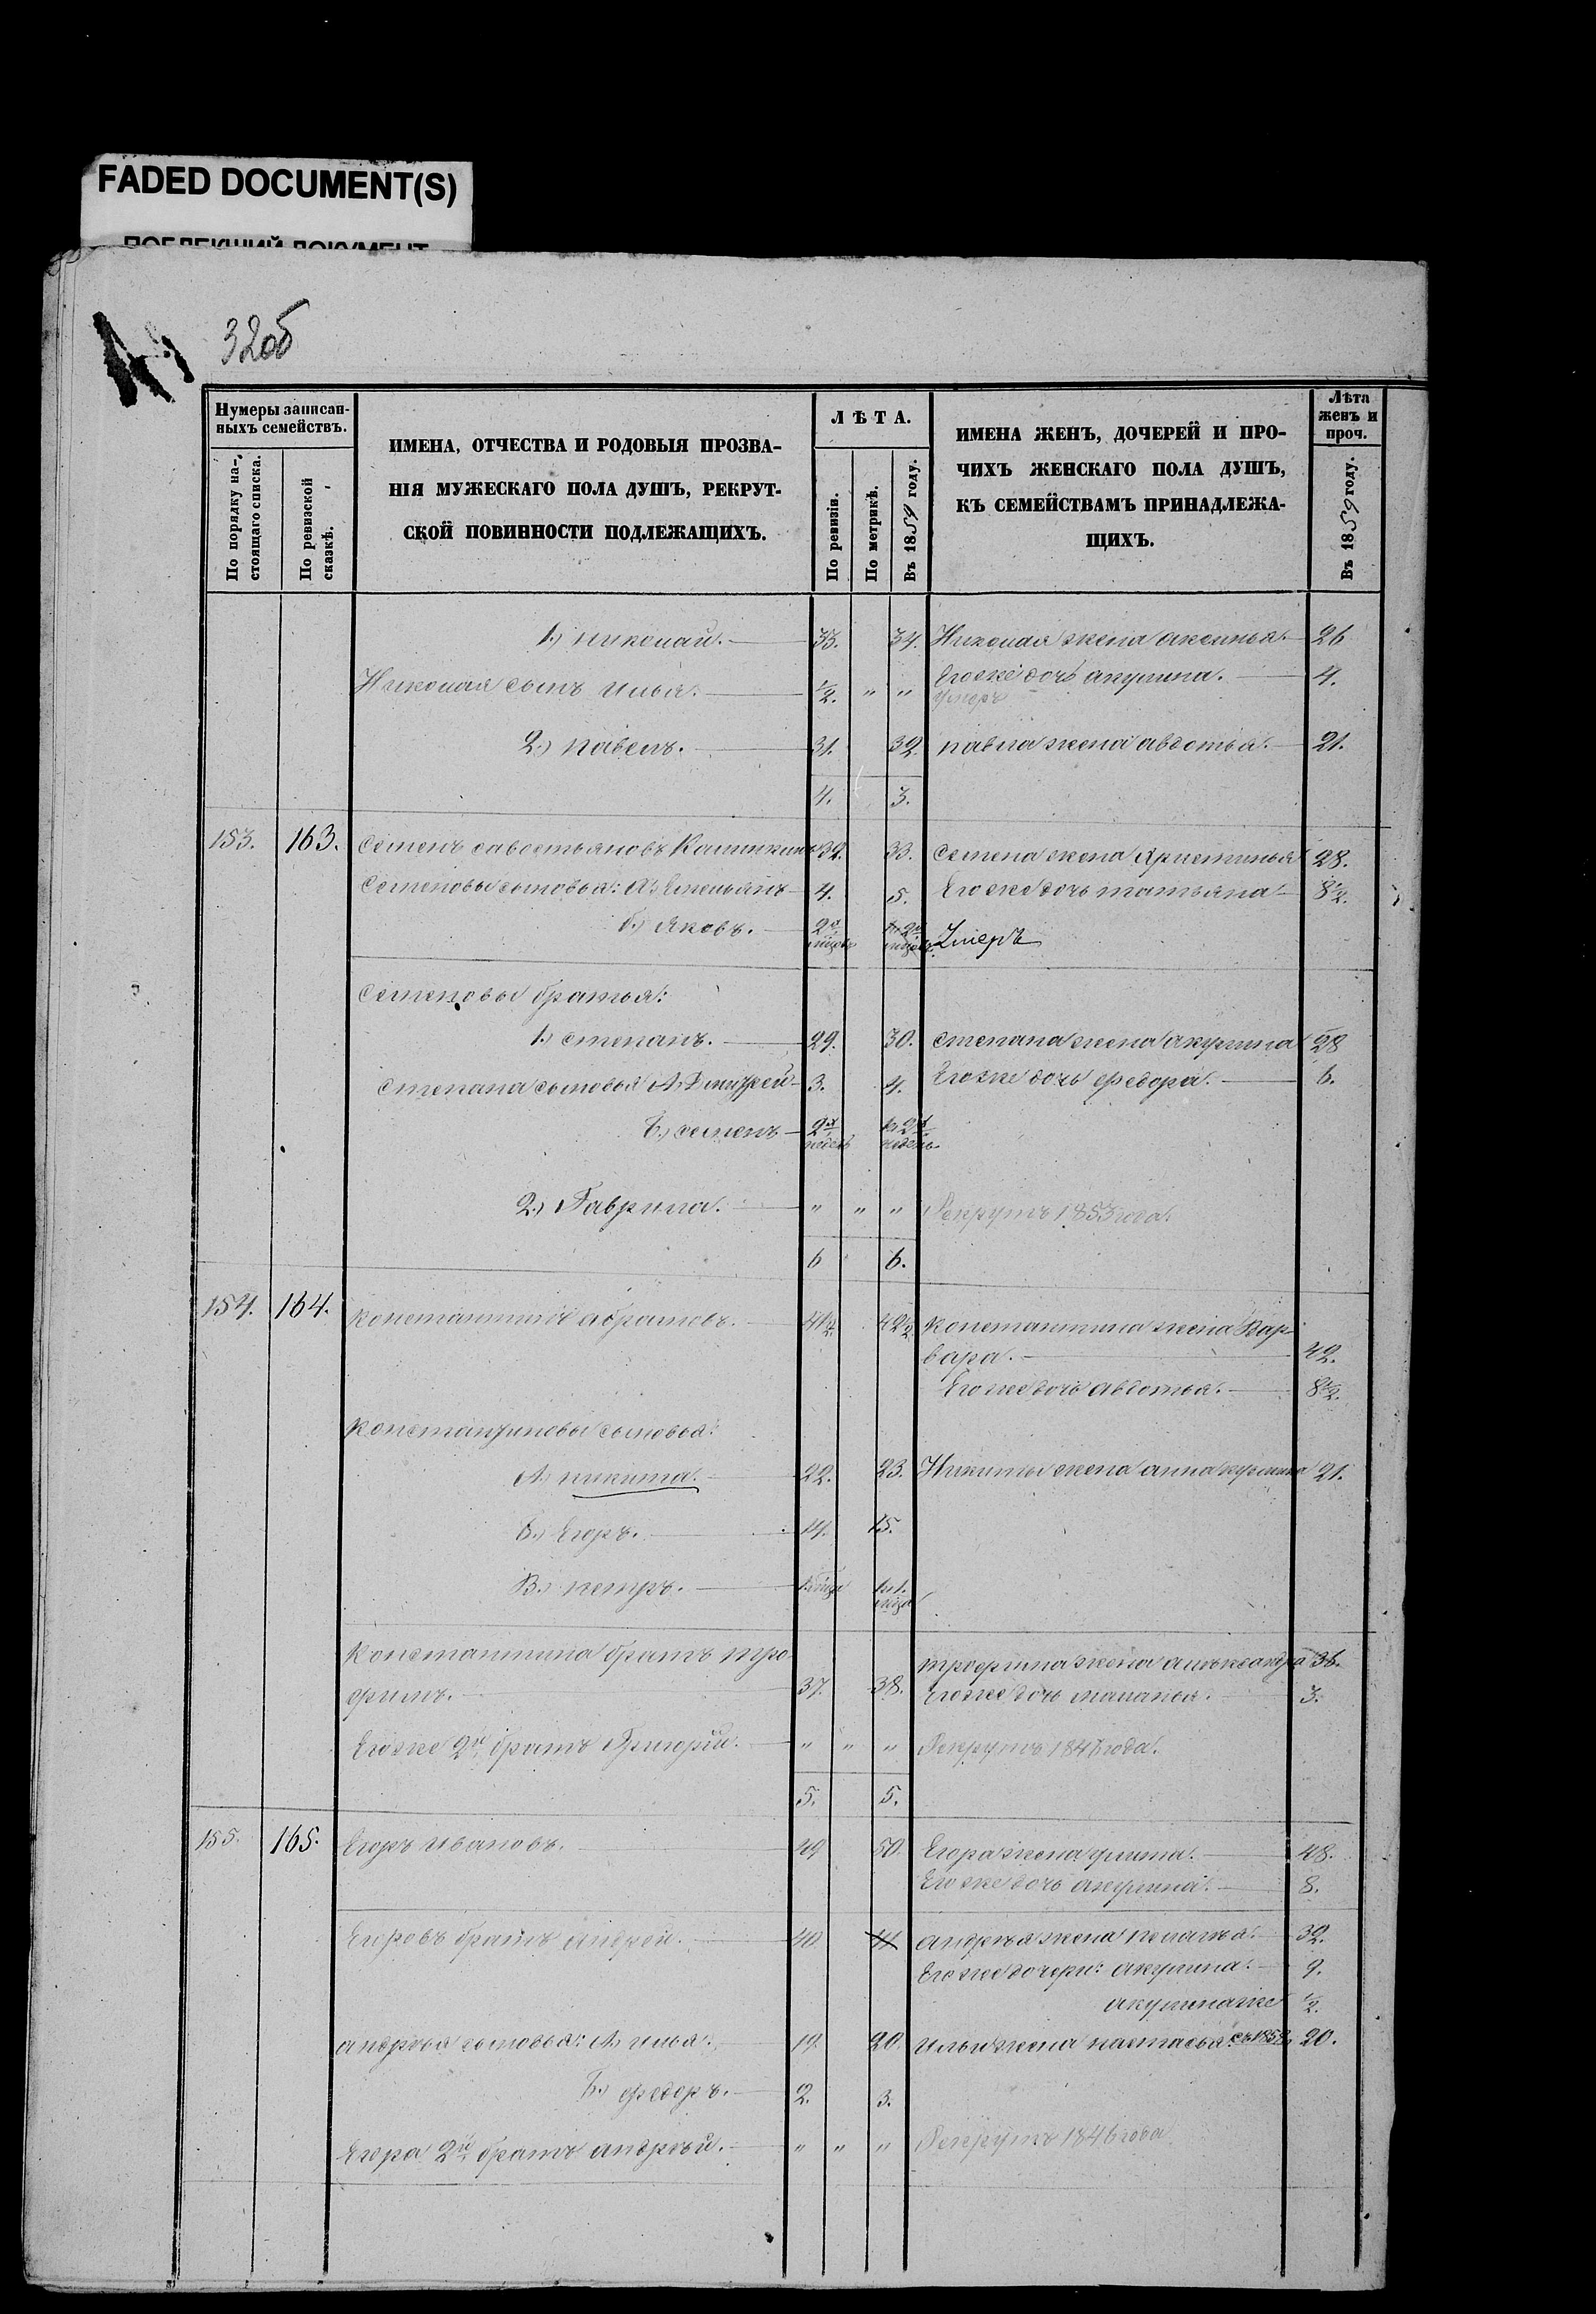 FADED DOCUMENT(S)
32об
Нумеры записан-
ныхъ семействъ.
По порядку на-
стоящаго списка.
По ревизской
сказкѣ.
ИМЕНА, ОТЧЕСТВА И РОДОВЫЯ ПРОЗВА-
НІЯ МУЖЕСКАГО ПОЛА ДУШЪ, РЕКРУТ-
СКОЙ ПОВИННОСТИ ПОДЛЕЖАЩИХЪ.
ЛѢТА.
По ревизіи.
По метрикѣ.
Въ 1859 году.
ИМЕНА ЖЕНЪ, ДОЧЕРЕЙ И ПРО-
ЧИХЪ ЖЕНСКАГО ПОЛА ДУШЪ,
КЪ СЕМЕЙСТВАМЪ ПРИНАДЛЕЖА-
ЩИХЪ.
Лѣта
женъ и
проч.
Въ 1859 году.
1.) николай. 33. 34. Николая жена аксинья. 26
Егоже дочь акулина. 4.
Николая сынъ илья. 1/2. " " умеръ
2.) павелъ. 31. 32 павла жена авдотья. 21.
4. 3.
153. 163. Семенъ савостьяновъ 32. 33. Семена жена Христинья 28.
Семеновы сыновья: А.) Емельянъ 4. 5. Егоже дочь татьяна 8 1/2.
б.) Яковъ. 2х 2х Умеръ
Семеновы братья:
1.) степанъ. 29. 30. степана жена акулина 28
степана сыновья А.) Дмитрей 3. 4. Егоже дочь федора. 6.
Б.) семенъ 2х недель 2х недель
2.) Гаврила. " " " Рекрутъ 1853 года.
6 6.
154. 164. константинъ абрамовъ. 41 1/2. 42 1/2 константина жена Вар-
вара. 42.
Егоже дочь авдотья. 8 1/2.
константиновы сыновья:
А.) никита. 22. 23. Никиты жена анна 21.
Б.) Егоръ. 14. 15.
В.) петръ.
Константина братъ тро-
фимъ. 37. 38. трофима жена александра 36.
Егоже дочь маланья. 3.
Егоже 2й братъ Григорій. " " " Рекрутъ 1847 года.
5. 5.
155. 165. Егоръ ивановъ. 49 50. Егора жена улита. 48.
Егоже дочь акулина. 8.
Егоровъ братъ андрей. 40 41 андрея жена пелагѣя. 32.
Егоже дочери: акулина. 9.
акулина же 1/2.
андрея сыновья: А.) илья. 19. 20. ильи жена настасья. съ 1858 20.
Б.) федоръ. 2. 3.
Егора 2й братъ андрѣй. " " " Рекрутъ 1846 года